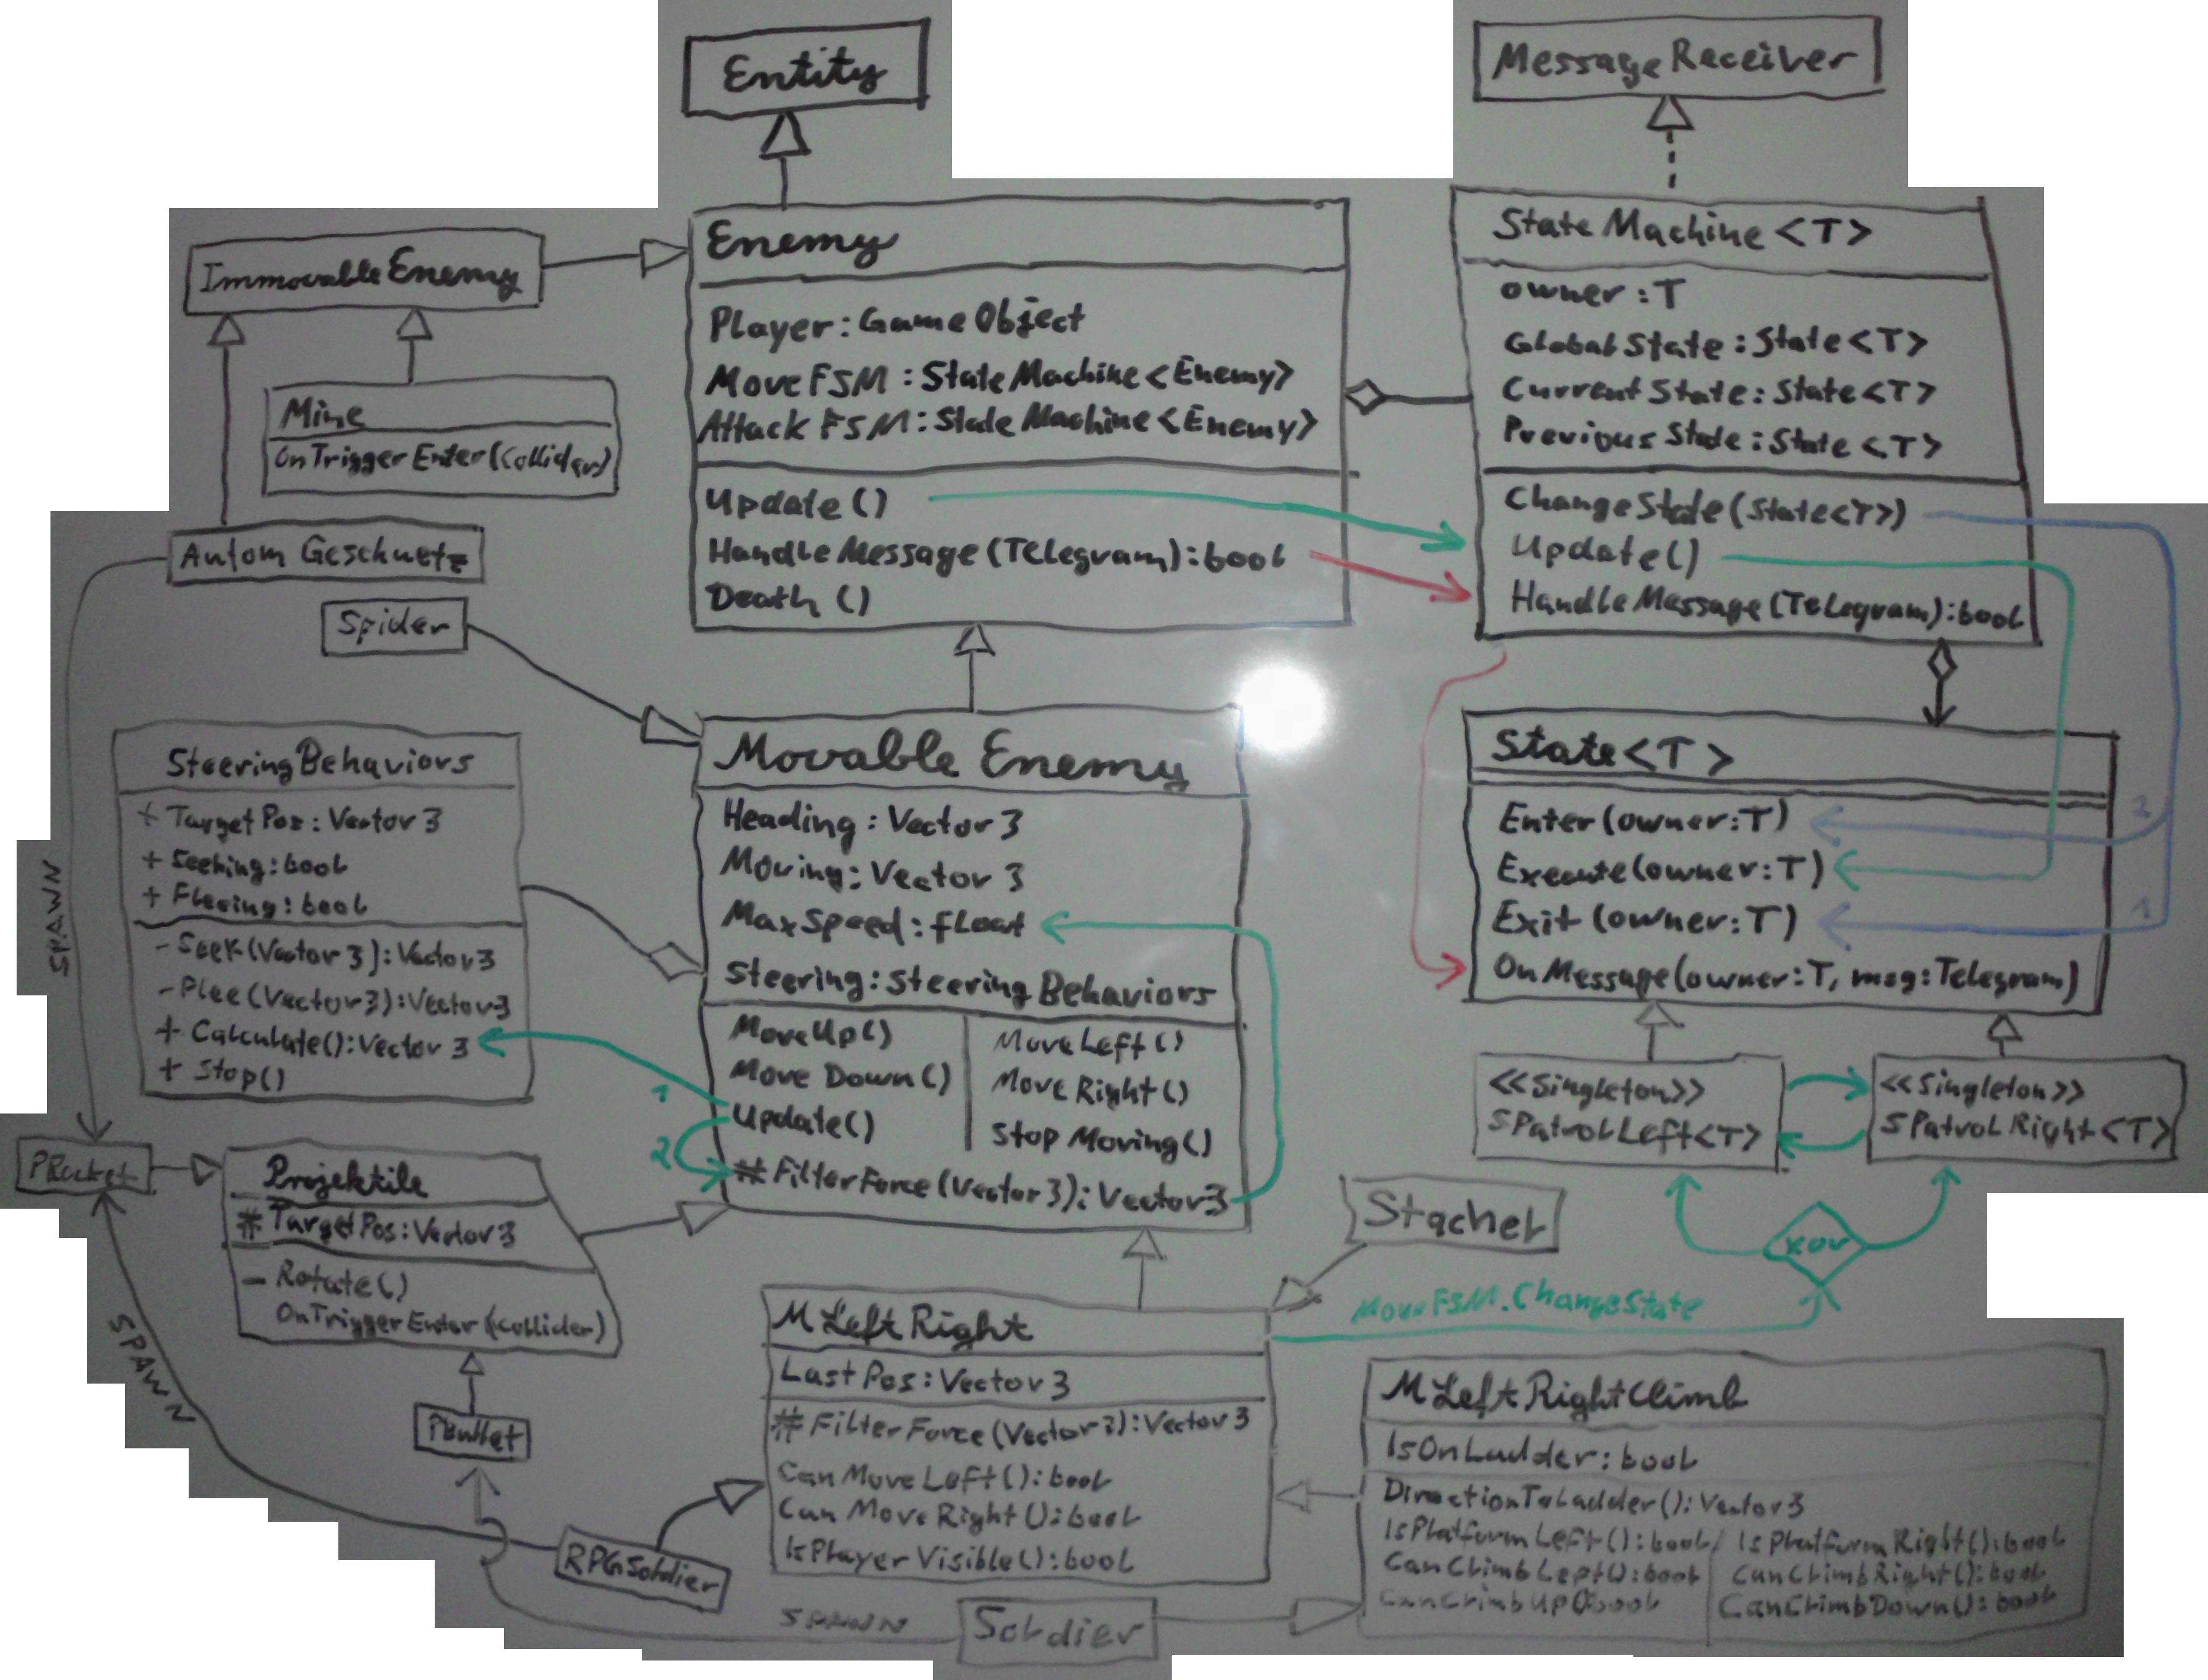 Entity
MessageReceiver
ImmovableEnemy
Enemy
Player: GameObject
MoveFSM: StateMachine<Enemy>
AttackFSM: StateMachine<Enemy>
Update()
HandleMessage(Telegram): bool
Death()
StateMachine<T>
owner: T
GlobalState: State<T>
CurrentState: State<T>
PreviousState: State<T>
ChangeState(State<T>)
Update()
HandleMessage(Telegram): bool
Mine
OnTriggerEnter(Collider)
Autom Geschuetz
Spider
SPAWN
SteeringBehaviors
+ TargetPos: Vector3
+ Seeking: bool
+ Fleeing: bool
- Seek(Vector3): Vector3
- Flee(Vector3): Vector3
+ Calculate(): Vector3
+ Stop()
Movable Enemy
Heading: Vector3
Moving: Vector3
MaxSpeed: float
Steering: SteeringBehaviors
MoveUp()
MoveDown()
Update()
MoveLeft()
MoveRight()
StopMoving()
# FilterForce(Vector3): Vector3
1
2
State<T>
Enter(owner: T)
Execute(owner: T)
Exit(owner: T)
OnMessage(owner: T, msg: Telegram)
2
1
<<Singleton>>
SPatrolLeft<T>
<<Singleton>>
SPatrolRight<T>
xor
PRocket
Projektile
# TargetPos: Vector3
- Rotate()
OnTriggerEnter(Collider)
SPAWN
PBullet
Stachel
MoveFSM.ChangeState
MLeftRight
LastPos: Vector3
# FilterForce(Vector3): Vector3
CanMoveLeft(): bool
CanMoveRight(): bool
IsPlayerVisible(): bool
MLeftRightClimb
IsOnLadder: bool
DirectionToLadder(): Vector3
IsPlatformLeft(): bool / IsPlatformRight(): bool
CanClimbLeft(): bool | CanClimbRight(): bool
CanClimbUp(): bool | CanClimbDown(): bool
RPGSoldier
SPAWN
Soldier